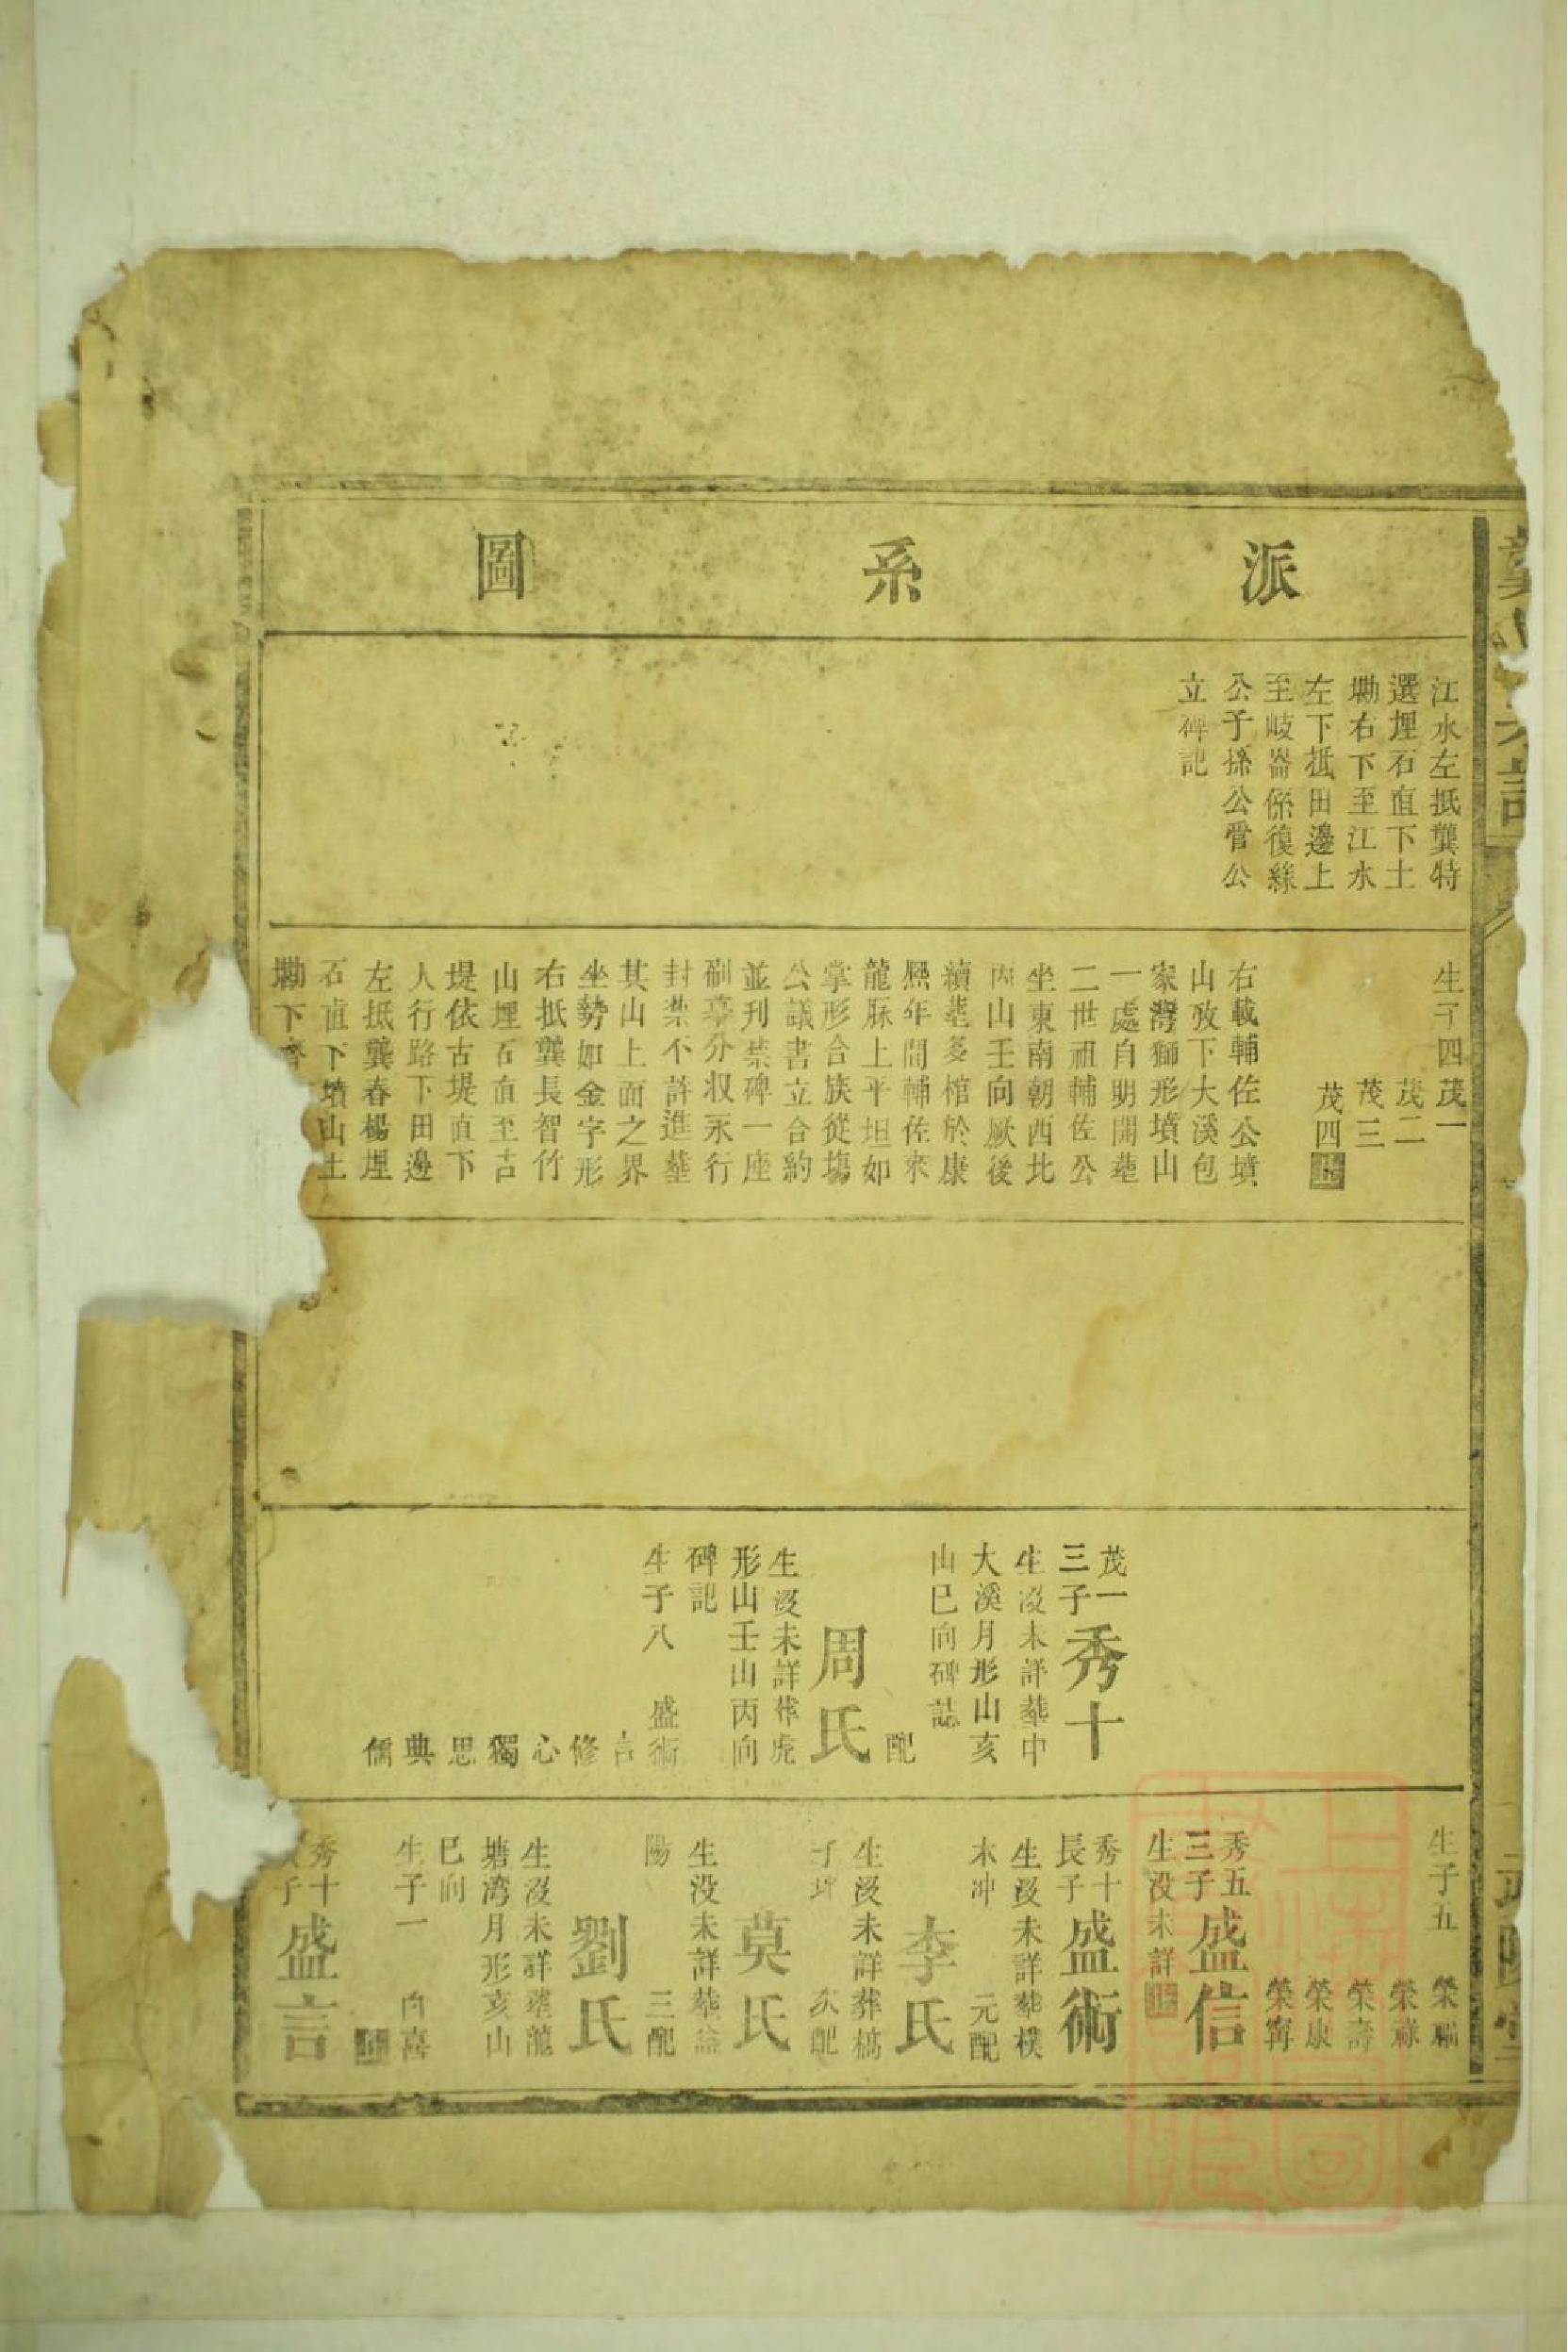 派系圖
江水左抵龔特
選埋石直下土
墈右下至江水
左下抵田邊上
至岐崙係復絲
公子孫公管公
立碑記
生子四茂一
茂二
茂三
茂四
右載輔佐公墳
山攷下大溪包
家灣獅形墳山
一處自明開塟
二世祖輔佐公
坐東南朝西北
丙山壬向厥後
續塟多棺於康
熙年間輔佐來
龍脉上平坦如
掌形合族從塲
公議書立合約
並刋禁碑一座
刷摹分収永行
封禁不許進塟
其山上面之界
坐勢如金字形
右抵龔長智竹
山埋石直至古
堤依古堤直下
人行路下田邊
左抵龔春楊埋
石直下墳山土
墈下
茂一
三子
秀十
生沒未詳塟中
大溪月形山亥
山巳向碑誌
配
周氏
生沒未詳葬虎
形山壬山丙向
碑記
生子八 盛術
言
修
心
獨
思
典
儒
生子五 榮福
榮祿
榮壽
榮康
榮寗
秀五
三子
盛信
生沒未詳
秀十
長子
盛術
生沒未詳塟樸
木冲 元配
李氏
生沒未詳葬楀
子坪 次配
莫氏
生沒未詳塟益
陽 三配
劉氏
生沒未詳塟龍
塘湾月形亥山
巳向
生子一 向喜
秀十
子
盛言